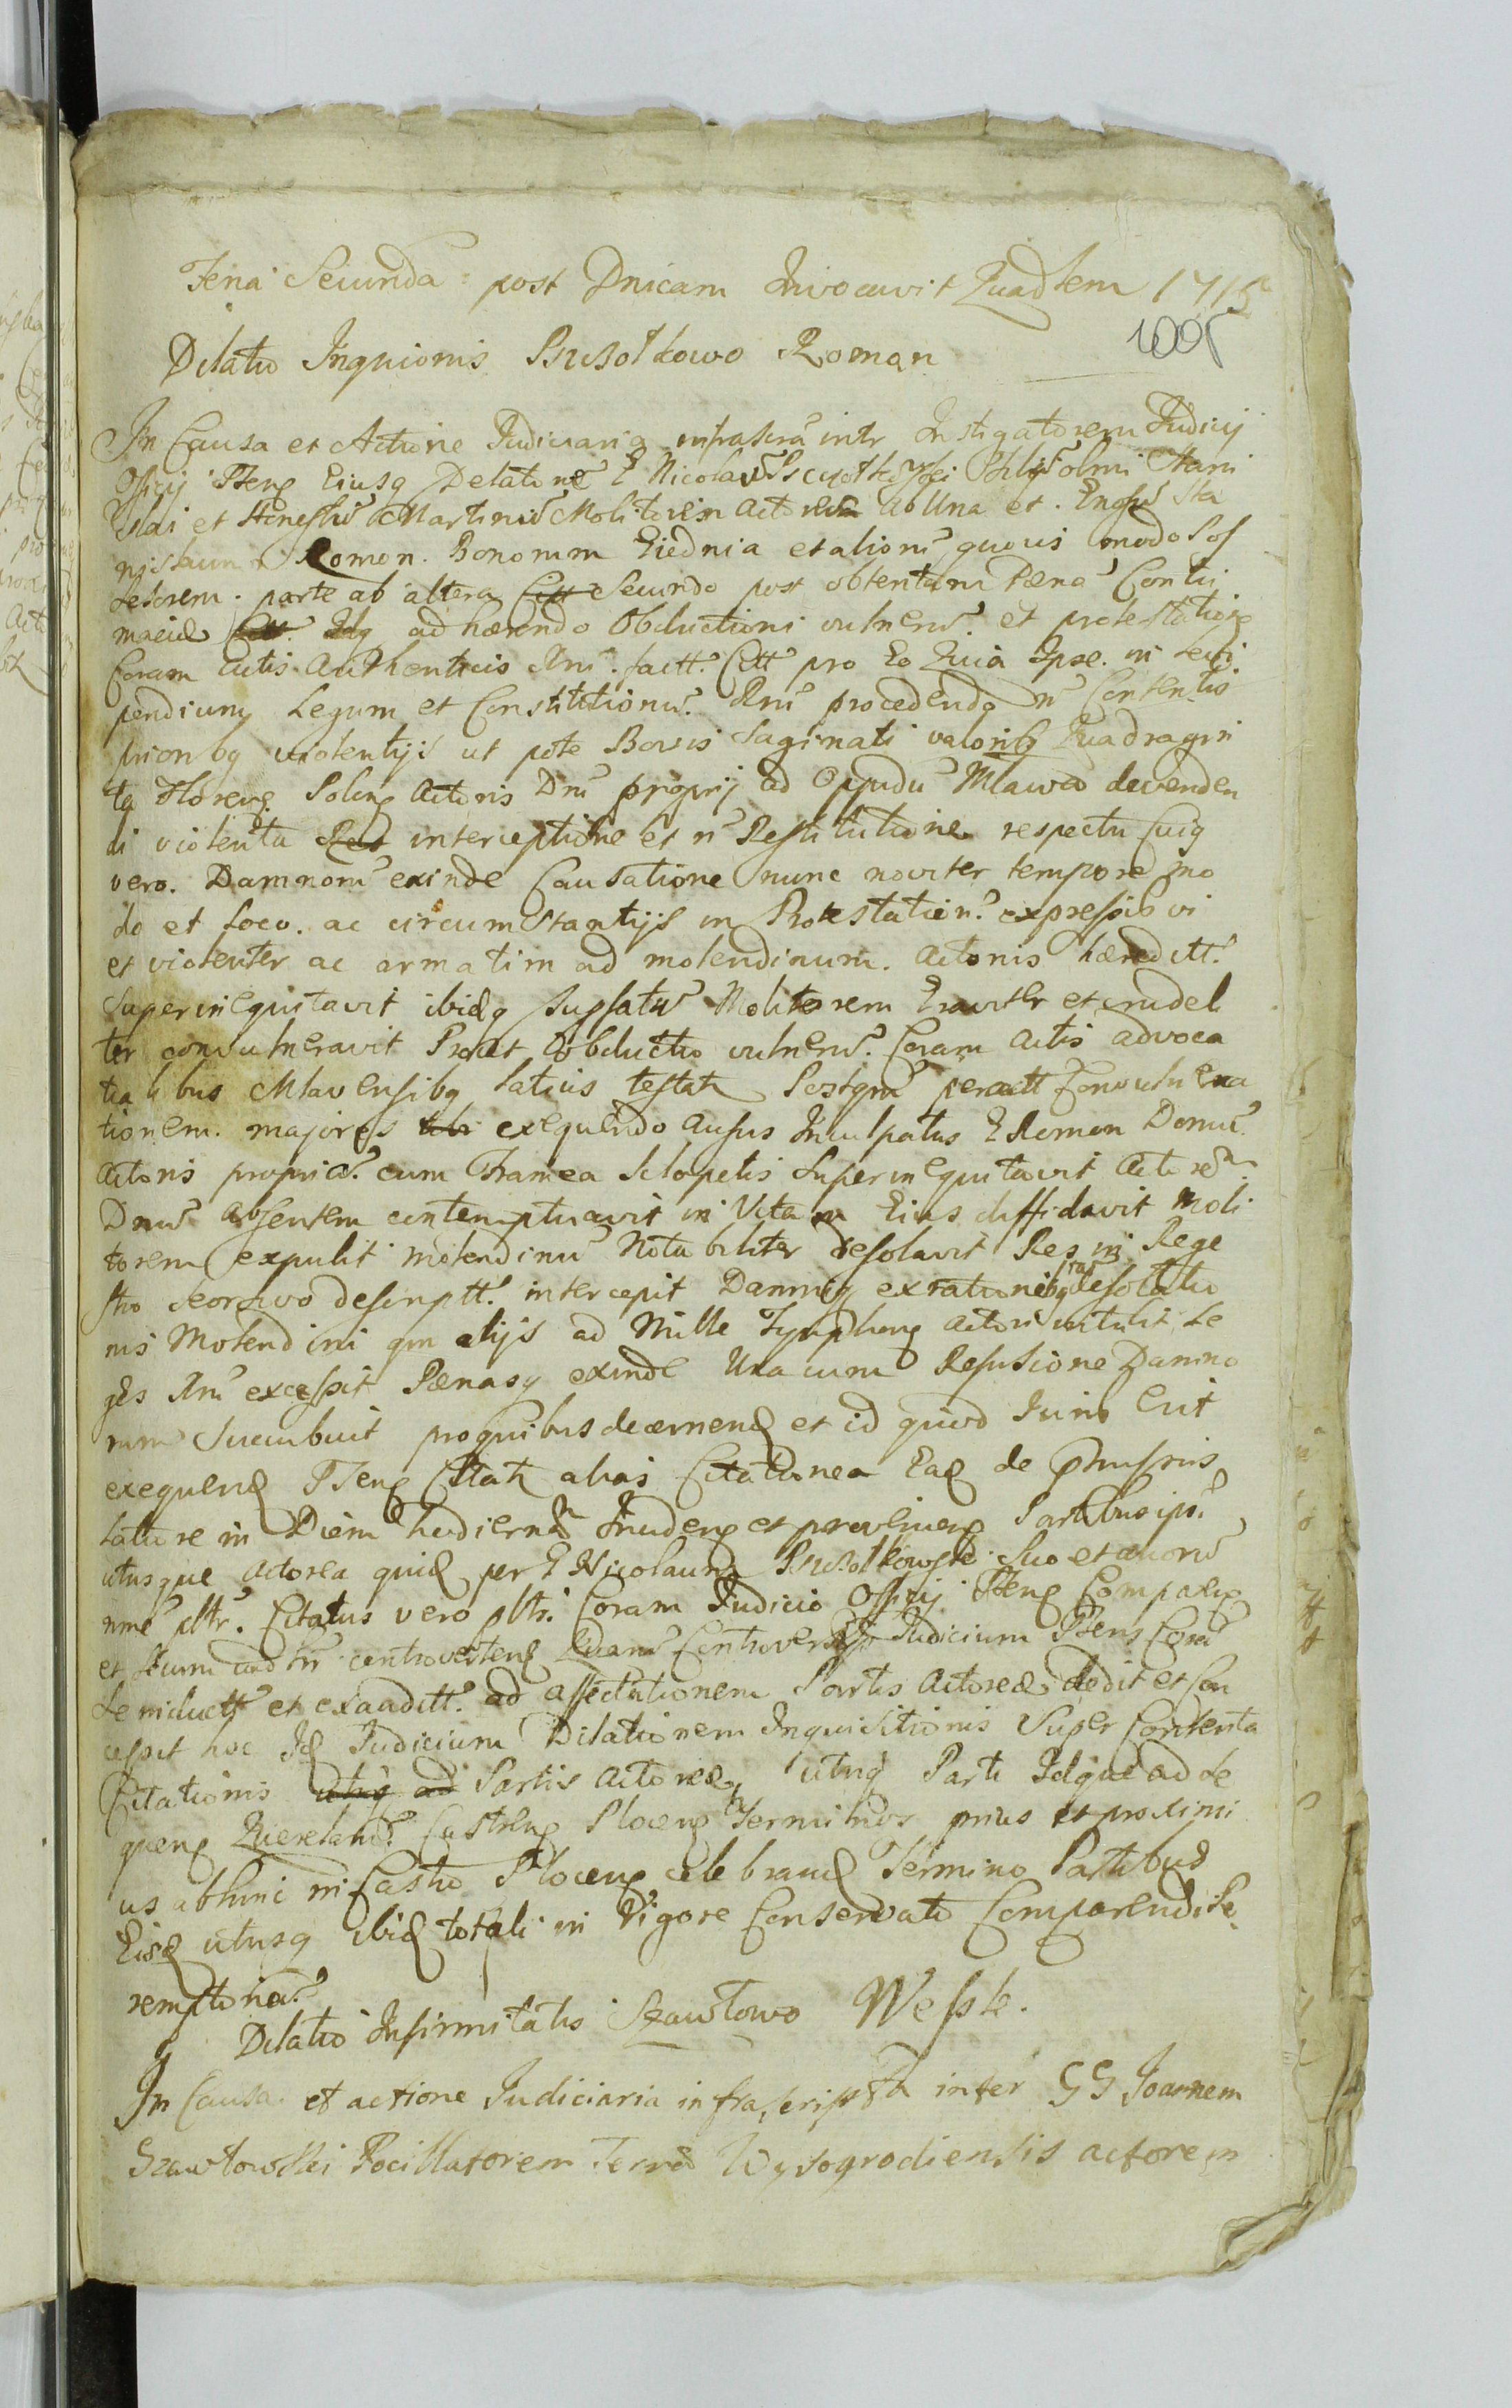 Feria Secunda post Dnicam Invocavit Quadlem 1715
1005
Dilatio Inqnionis Psuzolkowo Roman
In Causa et Actione Judiciaria infrascra intr Instigatorem Judicij
Officij Pseng Eiusq Delatone G Nicolau
et Honestu Martinu Molitorem Actorem ab Una et Gnosu Sta
nislaum Roman Bonorum Giednia et aliom quovis modo Pos
sesorem parte ab altera Citt Secundo post obtentam Pæna Contu
maciæ ad hærendo Obductioni vulneru et protestatione
Coram Actis Authenticis Rni factt Citt pro Eo Quia Ipse in
pendium Legum et Constitutionu Rni procedendo n Contentus
prioribq violentijs ut pote Bovis saginati valoribq Quadragin
ta Floreng Poleng Actoris Dni proprij ad Oppidu Mlawa devenden
di violenta Res interceptione et n Restitutione respectu Cuiq
vero Damnom exinde Causatione nunc noviter tempore mo
do et loco ac circumstantijs in Protestation expressis vi
et violenter ac armatim ad molendinum Actoris hæreditt
superinequitavit ibidq supsatu Molitorem Graviter et crudel
ter convulneravit Prout Obductio vulneru Coram Actis advoca
tialibus Mlavensibq latius testatr Postqm peractt Convulnera
tionem majores exequendo ausus Inculpatus G Roman Domu
Actoris propria cum Framea Sclopetis Superinequitavit Actorem
Dnu absentem contemptuavit in Vitam Eius diffidavit Moli
torem expulit Molendinu Notabiliter desolavit Res in Rege
stro seorsivo descriptt intercepit Damniq ex rationibq desolatio
nis Molendini qm alijs ad Mille Tympheng Actori intulit Le
ges Rni excessit Pænasq exinde Una cum Refusione Damno
rum Succubuit pro quibus decernend et id quod Juris Erit
exequend Pseng Citatr alias Citatione Ead de
latiore in Diem hodierna Incideng et provenieng Partibus ips
utrisque Actorea quid per G Nicolaum Pszuzolkowski Suo et aliorum
nme pltr. Citatus vero pltr. Coram Judicio Officij Pseng Compareng
et secum ad inr controverteng Quaru Controversijs Judicium Psens Cora
Se niductt et exauditt ad affectationem Partis Actoreæ dedit et con
cessit hoc Id Judicium Dilationem Inquisitionis Super Contenta
Citationis utriq ad Partis Actoreæ utriq Parti Idque ad Se
queng Querelaru Castreng Ploceng Terminos prius et proximi
us abhinc in Castro Ploceng celebrand Termino Partibus
Eisd utrisq ibid totali in Vigore Conservato Comparendi Pe
remptorie
Dilatio Infirmitatis Szawłowo Wessle.
In Causa et actione Judiciaria infrascripta inter GG Joannem
Szawłowski Pocillatorem Terræ Wyszogrodiensis actorem